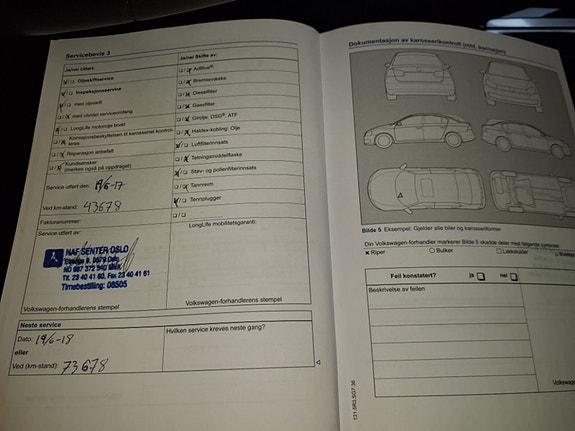 Servicebevis 3
Ja/nei Utført:
Oljeskiftservice
Inspeksjonsservice
med oljeskift
med utvidet serviceomfang
LongLife motorolje brukt
Korrosjonsbeskyttelsen til karosseriet kontrol-
leres
Reparasjon anbefalt
Kundeønsker
(merkes også på oppdraget)
Service utført den: 19/6-17
Ved km-stand: 43678
Fakturanummer:
Service utført av:
NAF SENTER OSLO
0579 Oslo
NO 987 372 540 MVA
Tlf. 23 40 41 60, Fax 23 40 41 61
Timebestilling: 08505
Volkswagen-forhandlerens stempel
Ja/nei Skifte av:
AdBlue®
Bremsevæske
Dieselfilter
Gassfilter
Girolje, DSG®, ATF
Haldex-kobling: Olje
Luftfilterinnsats
Tetningsmiddelflaske
Støv- og pollenfilterinnsats
Tannreim
Tennplugger
LongLife mobilitetsgaranti:
Volkswagen-forhandlerens stempel
Neste service
Dato: 19/6-19
eller
Ved (km-stand): 73678
Hvilken service kreves neste gang?
Dokumentasjon av karosserikontroll (mht. korrosjon)
Bilde 5 Eksempel: Gjelder alle biler og karosseriformer
Din Volkswagen-forhandler markerer Bilde 5 skadde deler med følgende symboler:
Riper
Bulker
Lakkskader
Feil konstatert? ja nei
Beskrivelse av feilen
Volkswagen
131.5R3.SG7.36